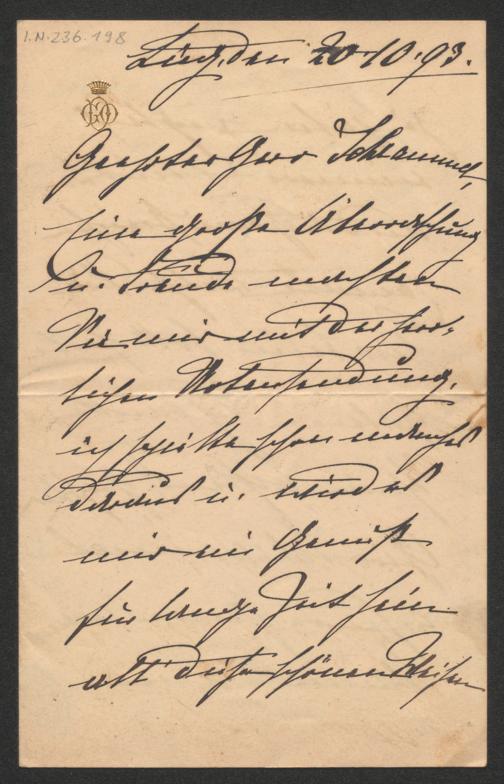 I.N. 236.198
Linz, den 20.10.93.
Geehrter Herr Schrammel,
Eine große Überraschung
u. Freude machten
Sie mir mit der herr-
lichen Notensendung,
ich spielte schon manches
daraus u. wird es
mir ein Genuß
für lange Zeit sein
all diese schönen Weisen